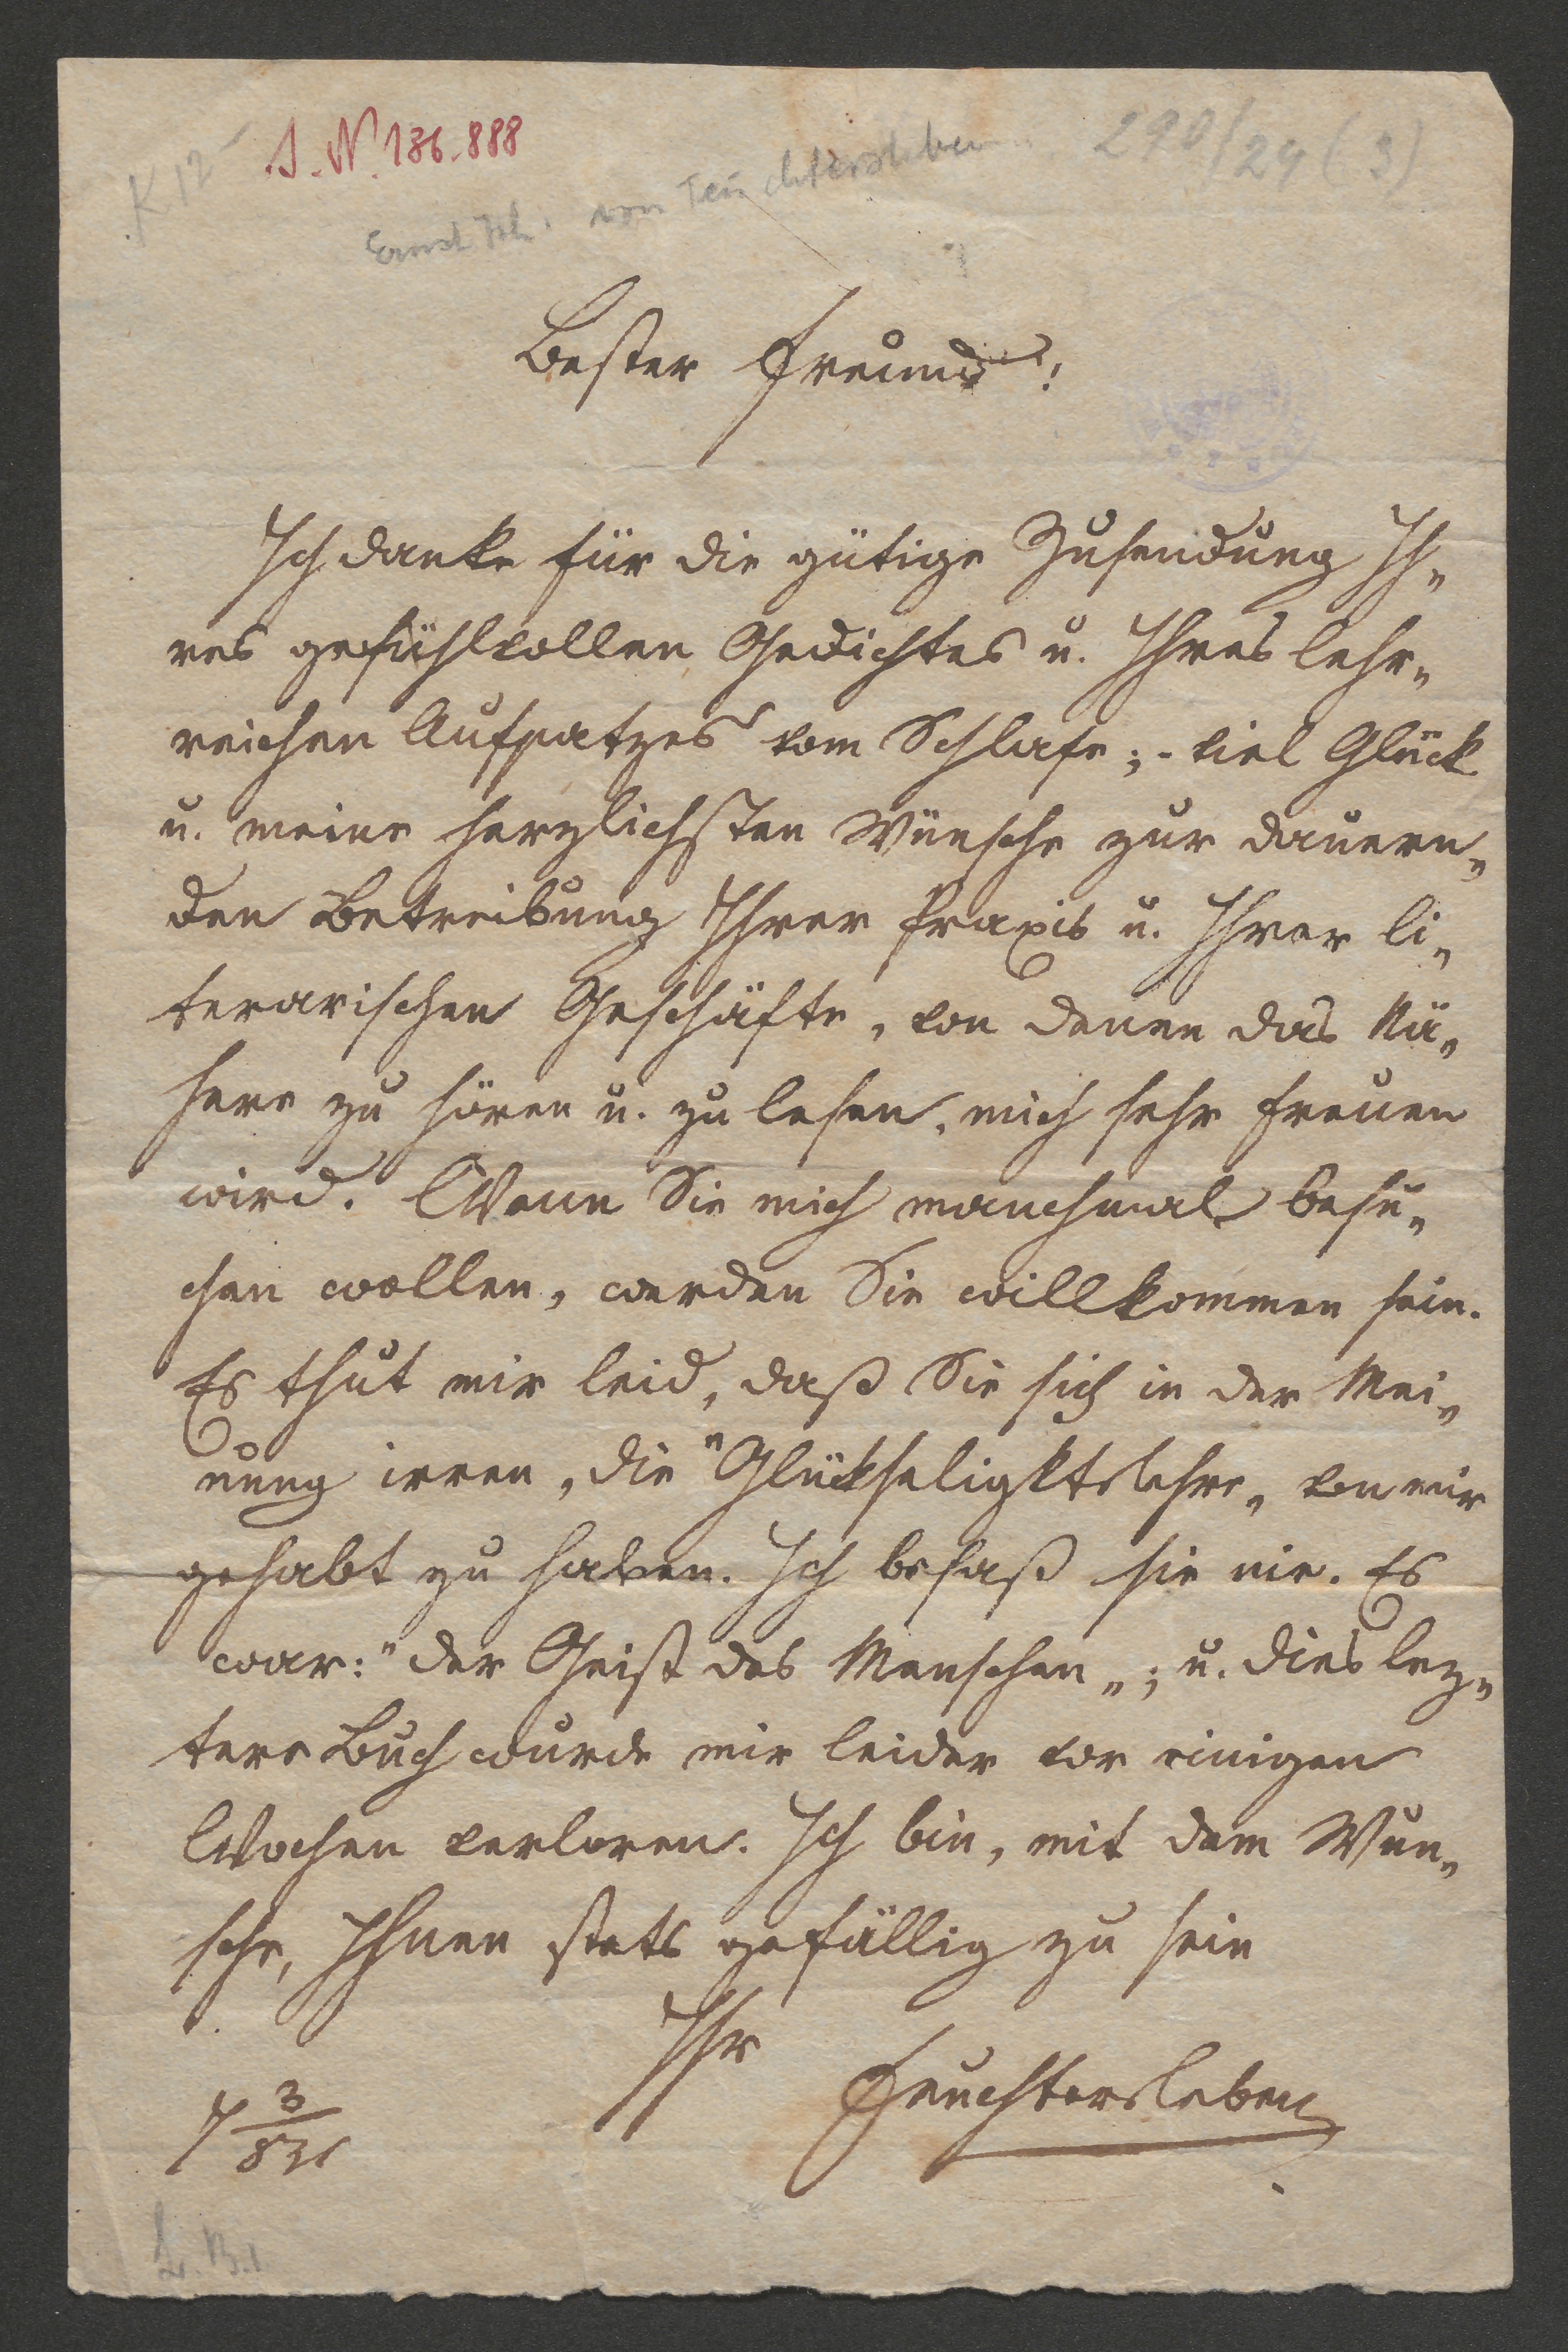 K 12
I. N. 136.888
290/24 (3)
Ernst Frh. von Feuchtersleben
Bester Freund!
Ich danke für die gütige Zusendung Ih-
res gefühlvollen Gedichtes u. Ihres lehr-
reichen Aufsatzes vom Schlafe; - viel Glück
u. meine herzlichsten Wünsche zur dauern-
den Betreibung Ihrer Praxis u. Ihrer li-
terarischen Geschäfte, von denen das Nä-
here zu hören u. zu lesen, mich sehr freuen
wird. Wenn Sie mich manchmal besu-
chen wollen, werden Sie willkommen sein.
Es thut mir leid, daß Sie sich in der Mei-
nung irren, die "Glückseligktslehre" von mir
gehabt zu haben. Ich besaß sie nie. Es
war: "der Geist des Menschen"; u. dies lez-
tere Buch wurde mir leider vor einigen
Wochen verloren. Ich bin, mit dem Wun-
sche, Ihnen stets gefällig zu sein
Ihr
Feuchtersleben